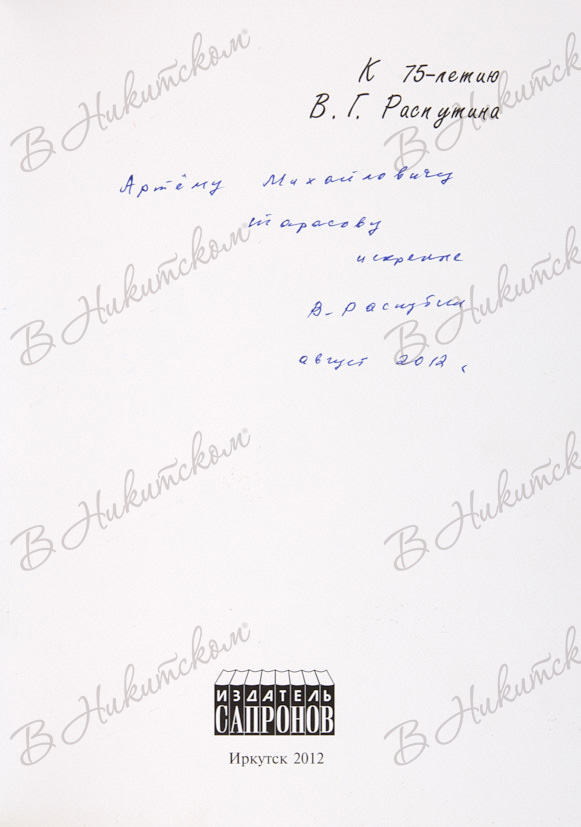 К 75-летию
В. Г. Распутина
Артёму Михайловичу
Тарасову
искренне
В. Распутин
август 2012 г.
ИЗДАТЕЛЬ
САПРОНОВ
Иркутск 2012
В Никитском®
В Никитском
В Никитском®
В Никитском
В Никитском®
В Никитском
В Никитском®
В Никитском